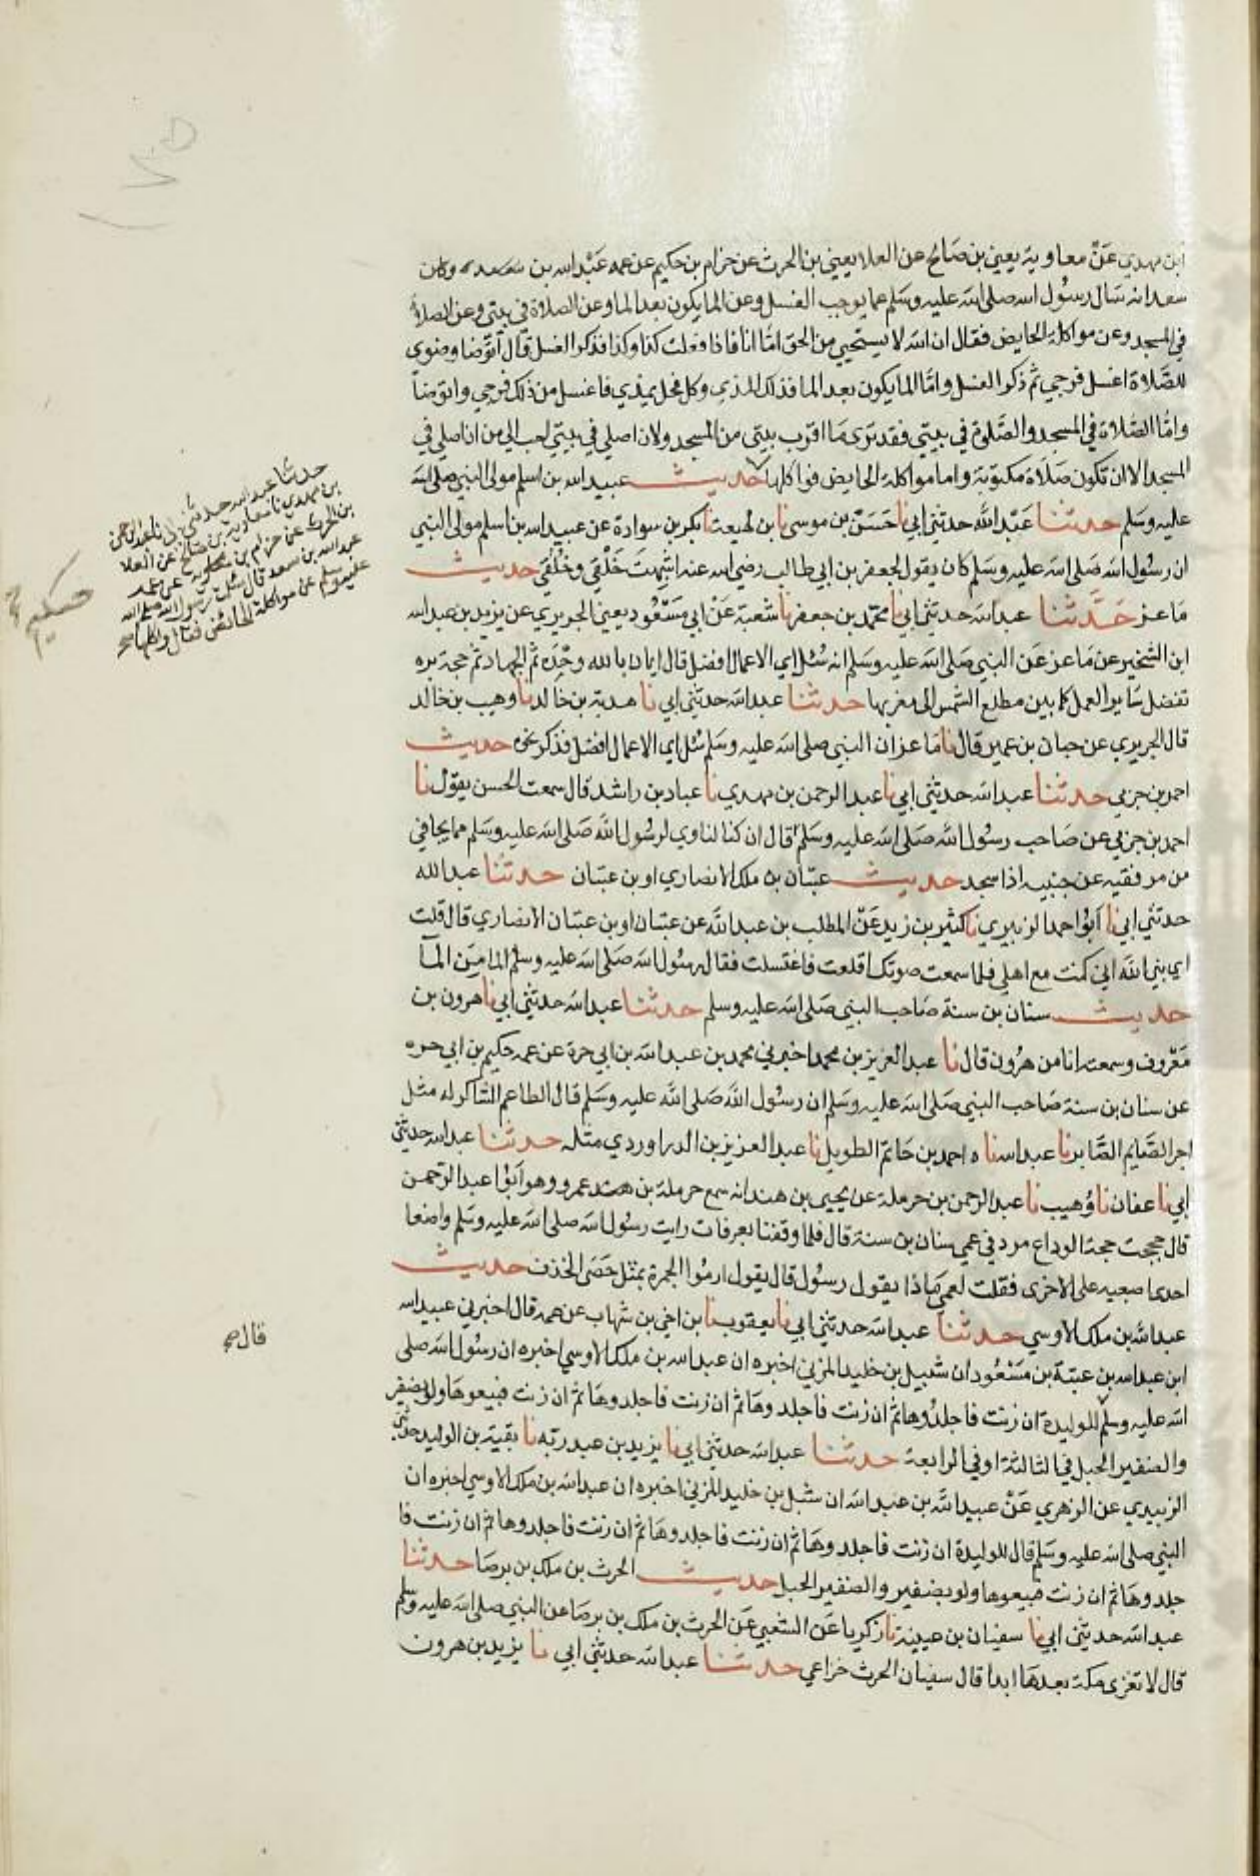 ابن مهدي عن معاوية يعني بن صالح عن العلا يعني بن الحرث عن حزام بن حكيم عن عمه عبد الله بن سعد وكان
سعد انه سال رسول الله صلى الله عليه وسلم عما يوجب الغسل وعن الما يكون بعد الما وعن الصلاة في بيتي وعن الصلاة
في المسجد وعن مواكلة الحايض فقال ان الله لا يستحيي من الحق امّا انا فاذا فعلت كذا وكذا فذكر الغسل قال اتوضا وضوي
للصّلاة اغسل فرجي ثم ذكر الغسل وامّا الما يكون بعد الما فذلك المذي وكل فحل يمذي فاغسل من ذلك فرجي واتوضأ
وامّا الصلاة في المسجد والصّلوة في بيتي فقد ترى ما اقرب بيتي من المسجد ولان اصلي في بيتي احب الي من ان اصلي في
المسجد الا ان تكون صلاة مكتوبة واما مواكلة الحايض فواكلها حديث عبيد الله بن اسلم مولى النبي صلى الله
عليه وسلم حدثنا عبد الله حدثني ابي نا حسن بن موسى نا بن لهيعة نا بكر بن سوادة عن عبيد الله بن اسلم مولى النبي
ان رسول الله صلى الله عليه وسلم كان يقول لجعفر بن ابي طالب رضي الله عنه اشبهت خَلْقي وخُلُقي حديث
ماعز حدّثنا عبد الله حدثني ابي نا محمد بن جعفر نا شعبة عن ابي مسعود يعني الجريري عن يزيد بن عبد الله
ابن الشخير عن ماعز عن النبي صلى الله عليه وسلم انه سُئل اي الاعمال افضل قال ايمان بالله وحْدَه ثم الجهاد ثم حجة بره
تفضل ساير العمل كما بين مطلع الشمس الى مغربها حدثنا عبد الله حدثني ابي نا هدبة بن خالد نا وهيب بن خالد
قال الجريري عن حبان بن عمير قال نا ماعز ان النبي صلى الله عليه وسلم سُئل اي الاعمال افضل فذكر نحوه حديث
احمد بن جزي حدثنا عبد الله حدثني ابي نا عبد الرحمن بن مهدي نا عباد بن راشد قال سمعت الحسن يقول نا
احمد بن جزي عن صاحب رسول الله صلى الله عليه وسلم قال ان كنا لناوي لرسول الله صلى الله عليه وسلم مما يجافي
من مرفقيه عن جنبيه اذا سجد حديث عتبان بن ملك الانصاري او بن عتبان حدثنا عبد الله
حدثني ابي نا ابو احمد الزبيري نا كثير بن زيد عن المطلب بن عبد الله عن عتبان او بن عتبان الانصاري قال قلت
اي نبي الله اني كنت مع اهلي فلما سمعت صوتك اقلعت فاغتسلت فقال رسول الله صلى الله عليه وسلم الما من المآ
حديث سنان بن سنة صاحب النبي صلى الله عليه وسلم حدثنا عبد الله حدثني ابي نا هرون بن
معروف وسمعته انا من هرون قال نا عبد العزيز بن محمد اخبرني محمد بن عبد الله بن ابي حرة عن عمه حكيم بن ابي حره
عن سنان بن سنة صاحب النبي صلى الله عليه وسلم ان رسول الله صلى الله عليه وسلم قال الطاعم الشاكر له مثل
اجر الصّايم الصّابر نا عبد الله نا ه احمد بن حاتم الطويل نا عبد العزيز بن الدراوردي مثله حدثنا عبد الله حدثني
ابي نا عفان نا وُهيب نا عبد الرحمن بن حرملة عن يحيى بن هند انه سمع حرملة بن عمرو وهو ابو عبد الرحمن
قال حججت حجة الوداع مردفي عمي سنان بن سنة قال فلما وقفنا بعرفات رايت رسول الله صلى الله عليه وسلم واضعا
احدا صبعيه على الاخرى فقلت لعمي ماذا يقول رسول قال يقول ارموا الجمرة بمثل حصَى الخذف حديث
عبد الله بن ملك الاوسي حدثنا عبد الله حدثني ابي نا يعقوب نا بن اخي بن شهاب عن عمه قال اخبرني عبيد الله
ابن عبد الله بن عتبة بن مسعود ان شبل بن خليد المزني اخبره ان عبد الله بن ملك الاوسي اخبره ان رسول الله صلى
الله عليه وسلم للوليدة ان زنت فاجلدُوها ثم ان زنت فاجلدوها ثم ان زنت فاجلدوها ثم ان زنت فبيعوها ولو بضفير
والضفير الحبل في الثالثة او في الرابعة حدثنا عبد الله حدثني ابي نا يزيد بن عبد ربه نا بقية بن الوليد حدثني
الزبيدي عن الزهري عن عبيد الله بن عبد الله ان شبل بن خليد المزني اخبره ان عبد الله بن ملك الاوسي اخبره ان
النبي صلى الله عليه وسلم قال للوليدة ان زنت فاجلدوها ثم ان زنت فاجلدوها ثم ان زنت فاجلدوها ثم ان زنت فا
جلدوها ثم ان زنت فبيعوها ولو بضفير والضفير الحبل حديث الحرث بن ملك بن برصا حدثنا
عبد الله حدثني ابي نا سفيان بن عيينة نا زكريا عن الشعبي عن الحرث بن ملك بن برصا عن النبي صلى الله عليه وسلم
قال لا تغزى مكة بعدها ابدا قال سفيان الحرث خزاعي حدثنا عبد الله حدثني ابي نا يزيد بن هرون
حدثنا عبد الله حدثني ابي نا عبد الرحمن
بن مهدي نا معاوية بن صالح عن العلا
بن الحرث عن حزام بن عن عمه
عبد الله بن سعد قال سئلت رسول الله صلى الله
عليه وسلم عن مواكلة الحائض فقال واكلها صح
حكيم
قال صح